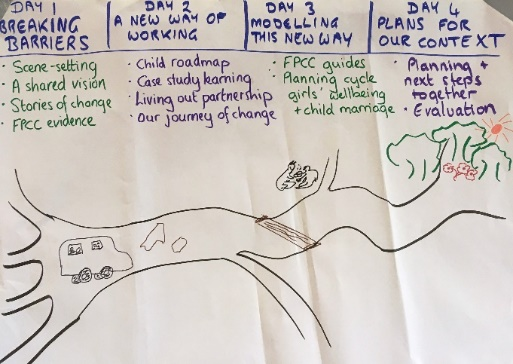 DAY 1
BREAKING
BARRIERS
• Scene-setting
• A shared vision
• Stories of change
• FPCC evidence
DAY 2
A NEW WAY OF
WORKING
• Child roadmap
• Case study learning
• Living out partnership
• Our journey of change
DAY 3
MODELLING
THIS NEW WAY
• FPCC guides
• Planning cycle
girls' wellbeing
+ child marriage
DAY 4
PLANS FOR
OUR CONTEXT
• Planning +
next steps
together
• Evaluation